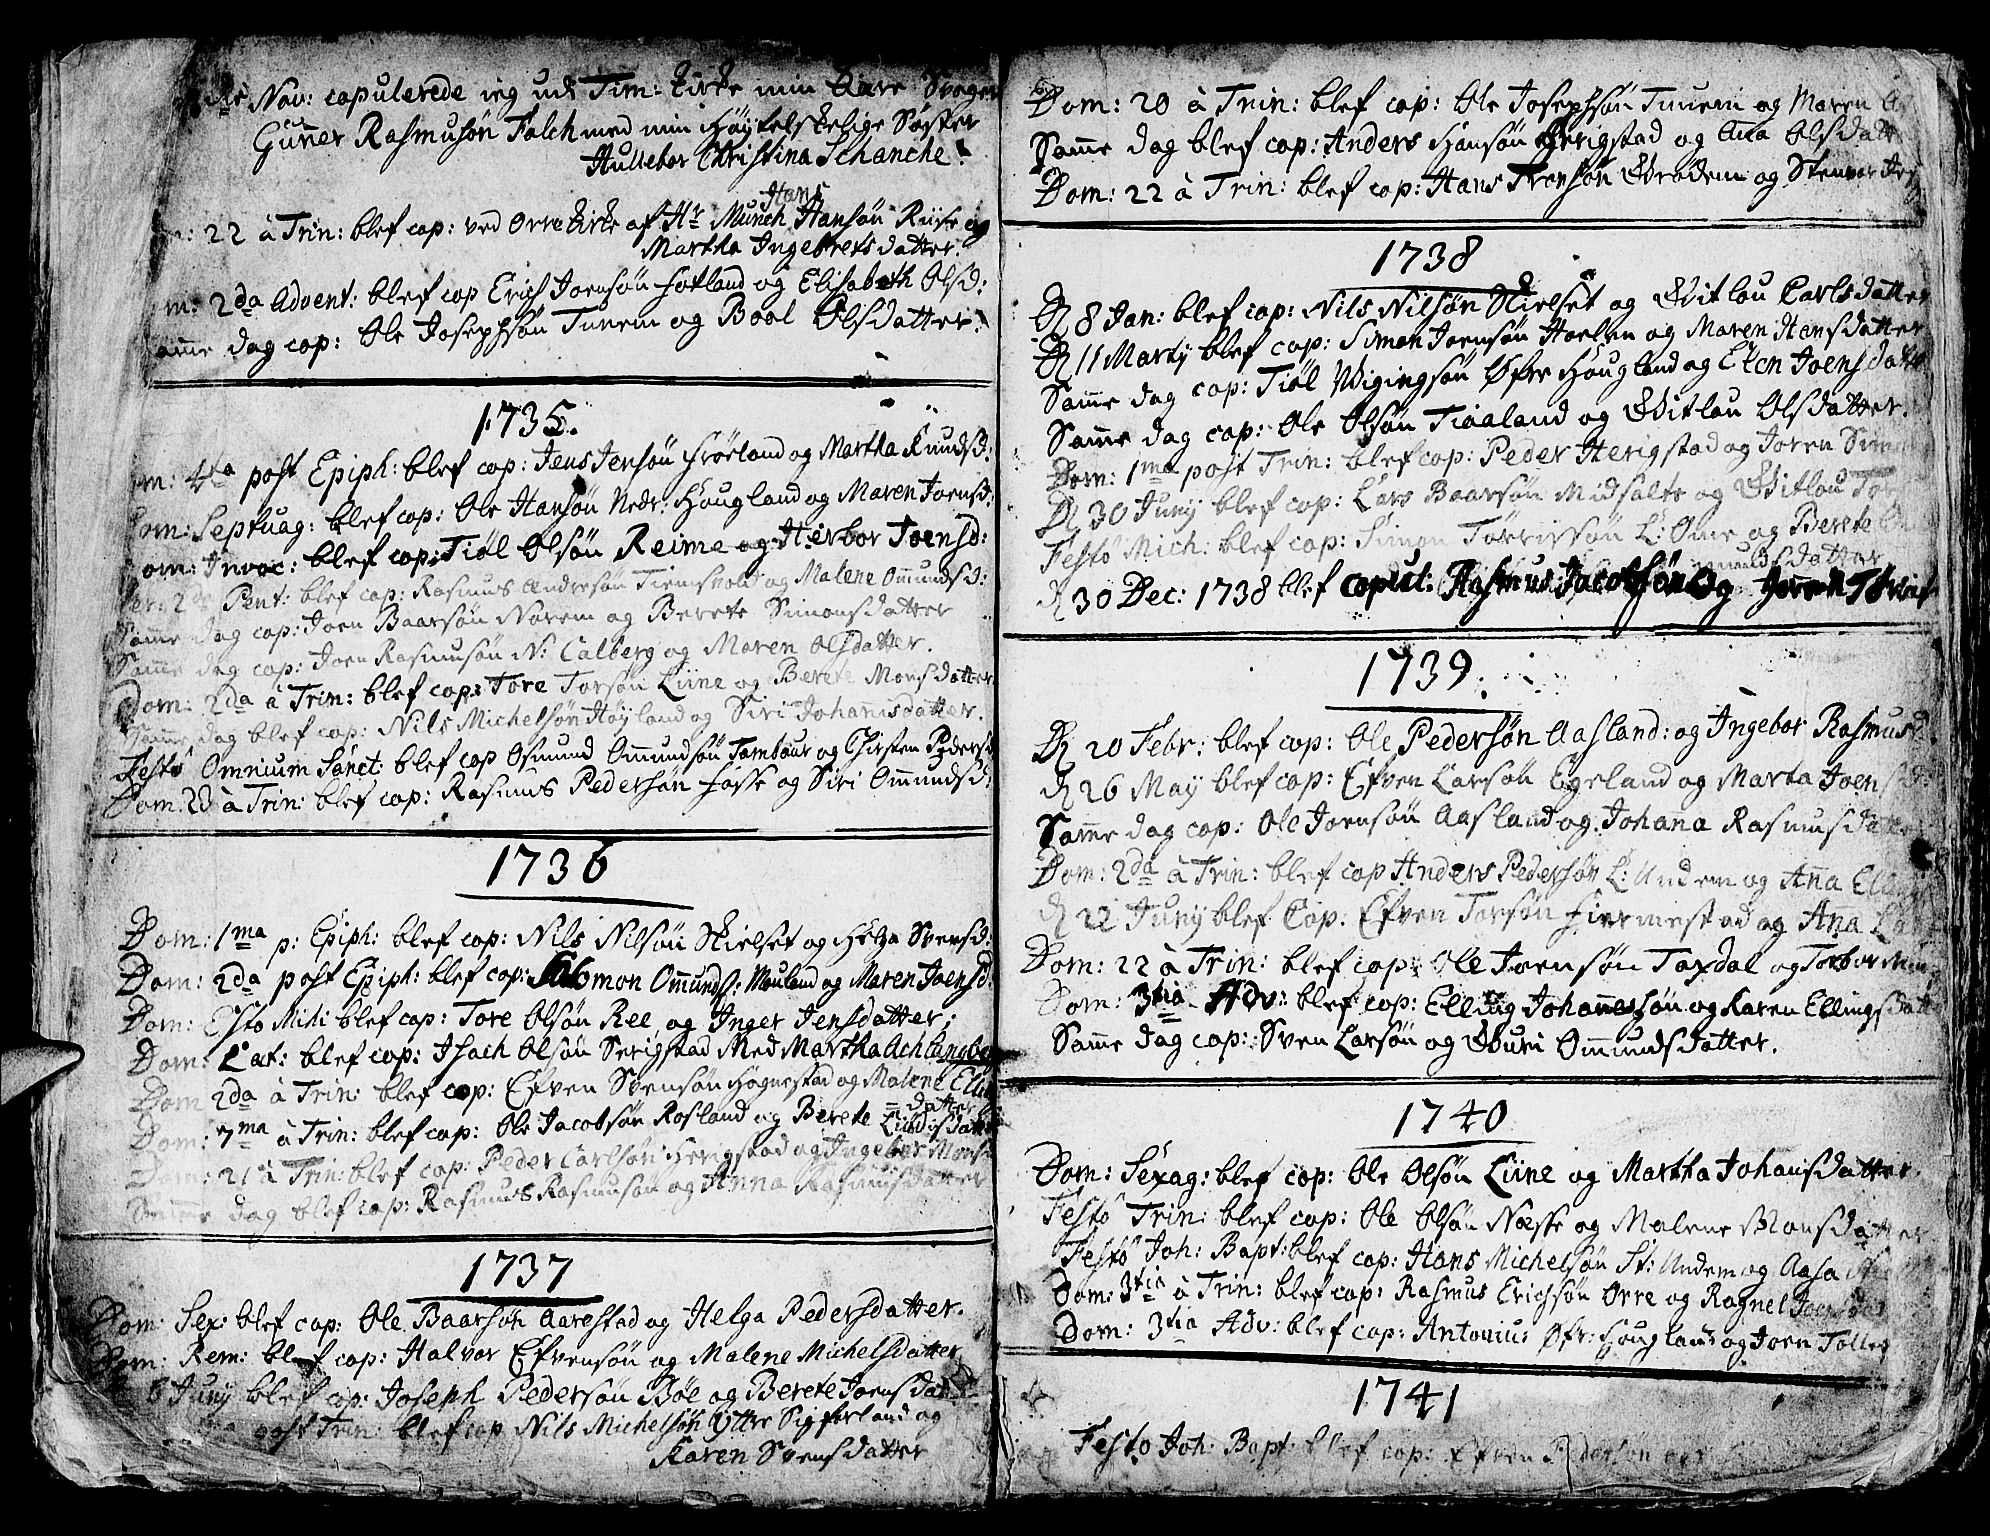 Nov: copulerede ieg udi Tim: kirke min Kiære Svoger
Gunner Rasmusøn Falch med min Høytelskelige Søster
Hulleber Christina Schanche.
Hans
22 à Trin: blef cop: ved Orre kirke af Hr Munch Hansøn Riise og
Martha Ingebrets datter.
2da Advent: blef cop Erich Joensøn Hotland og Elisabeth Olsd:
Samme dag cop: Ole Josephsøn Tunem og Boel Olsdatter.
1735.
4ta post Epiph: blef cop: Jens Jensøn Frøeland og Martha Knudsd:
Dom: Septuag: blef cop: Ole Hansøn Nedr: Hougland og Maren Joensd:
Dom: Invoc: blef cop: Tiøl Olsøn Reime og Herbor Joensd:
Pent: blef cop: Rasmus Andresøn Tiensvold og Malene Ommundsd:
Samme dag cop: Joen Baarsøn Norem og Berete Simonsdatter
Samme dag cop: Joen Rasmusøn N: Calberg og Maren Olsdatter.
Dom: 2da à Trin: blef cop: Tore Torsøn Liine og Berete Monsdatter
Samme dag blef cop: Nils Michelsøn Høyland og Siri Johannisdatter.
Festo Omnium Sanct: blef cop Osmund Ommundsøn Tambaur og Chirsten Pedersd
Dom: 23 à Trin: blef cop: Rasmus Pedersøn Fosse og Siri Ommundsd:
1736
Dom: 1ma p: Epiph: blef cop: Nils Nilsøn Skielset og Helga Svensd:
Dom: 2da post Epiph: blef cop: Salomon Ommunds: Mauland og Maren Joensd.
Dom: Esto Mihi blef cop: Tore Olsøn Ree og Inger Jensdatter;
Dom: Læt: blef cop: Isach Olsøn Serigstad Med Martha
Dom 2da à Trin: blef cop: Efven Svensøn Høgnestad og Malene
=datter
Dom: 7ma à Trin: blef cop: Ole Jacobsøn Rosland og Berete
Dom: 21 à Trin: blef cop: Peder Carlsøn Herigstad og Ingebor Mons
Samme dag blef cop: Rasmus Rasmusøn og Anna Rasmusdatter
1737
Dom: Sex: blef cop: Ole Baarsøn Aarestad og Helga Pedersdatter.
Dom: Rem: blef cop: Halvor Efvensøn og Malene Michelsdatter
6 Juny blef cop: Joseph Pedersøn Bøe og Berete Joensdat
post Trin: blef cop Nils Michelsøn Ytre Sigferland og
Karen Svensdatter
Dom: 20 à Trin: blef cop: Ole Josephsøn Tunem og Maren
Samme dag blef cop: Anders Hansøn Herigstad og Ana Olsdatt
Dom: 22 à Trin: blef cop: Hans Tronsøn Brødem og Stenvor
1738
D 8 Jan: blef cop: Nils Nilsøn Skielset og Gitlou Carlsdatter
D 11 Marty blef cop: Simon Joensøn Hoelen og Maren Hansdatter
Samme dag cop: Tiøl Wigingsøn Øfre Hougland og Elen Joensdatter
Samme dag cop: Ole Olsøn Tiaaland og Gitlou Olsdatter.
Dom: 1ma post Trin: blef cop: Peder Herigstad og Joren
D 30 Juny blef cop: Lars Baarsøn Midsalte og Gitlou
Festo Mich: blef cop: Simon Tørrissøn L: Ome og Berete
mundsdatter
D 30 Dec: 1738 blef copul: Rasmus Jacobsøn Og
1739.
D 20 Febr: blef cop: Ole Pedersøn Aasland: og Ingebor Rasmusd
D 26 May blef cop: Efven Larsøn Egeland og Marta Joensd:
Samme dag cop: Ole Joensøn Aasland og Johana Rasmusdatter
Dom: 2da à Trin: blef cop Anders Pedersøn L: Undem og Anna
D 22 Juny blef Cop: Efven Torsøn Hiermestad og Anna
Dom: 22 à Trin: blef cop: Ole Joensøn Taxdal og Torbor
Dom: 3tia Adv: blef cop: Elling Johannessøn og Karen Ellingsdatt
Samme dag cop: Sven Larsøn og Guri Ommundsdatter.
1740
Dom: Sexag: blef cop: Ole Olsøn Liine og Martha Johansdatter.
Festo Trin: blef cop: Ole Olsøn Næsse og Malene Monsdatter
Festo Joh: Bapt: blef cop: Hans Michelsøn St: Undem og Aasa
Dom: 3tia à Trin: blef cop: Rasmus Erichsøn Orre og Ragnel
Dom: 3tia Adv: blef cop: Antonius Øfr: Hougland og Joen
1741
Festo Joh: Bapt: blef cop: Efven Pedersøn